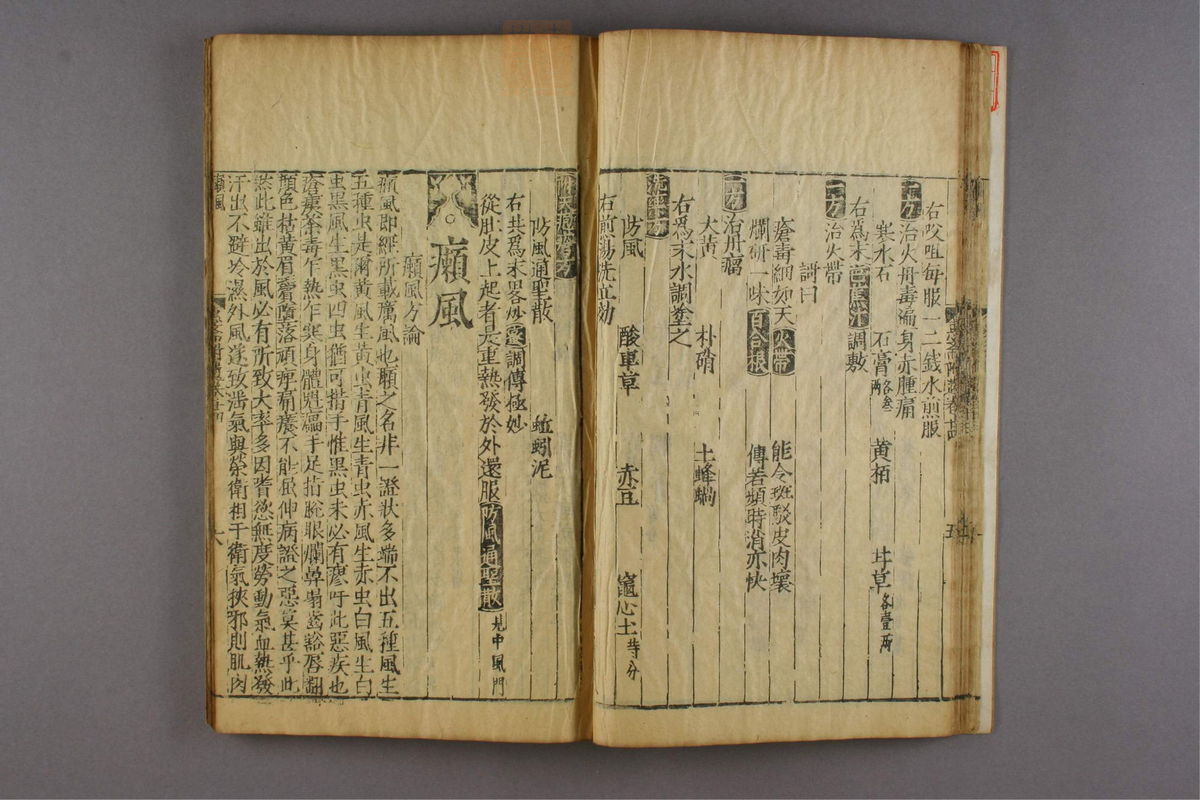 右㕮咀每服一二錢水煎服
一方治火丹毒遍身赤腫痛
寒水石 石膏各叁兩 黄栢 甘草各壹兩
右爲末芭蕉汁調敷
一方治火帶
訶曰
瘡毒綱如天火帶 能令斑駁皮肉壞
爛研一味百合根 傳若頃時消亦快
一方治丹瘤
大黄 朴硝 土蜂蜗
右爲末水調塗之
洗痒方
防風 酸車草 赤豆 竈心土等分
右煎湯洗立効
防風通聖散 蚯蚓泥
右共爲末畧炒蜜調傅極妙
從肚皮上起者是重熱發於外還服防風通聖散見中風門
癩風
癩風方論
癩風即經所載厲風也癩之名非一證狀多端不出五種風生
五種虫是爾黄風生黄虫青風生青虫赤風生赤虫白風生白
虫黒風生黒虫四虫猶可措手惟黒虫未必有瘳吁此惡疾也
瘡痍荼毒乍熱乍寒身體魁瘟手足指脫眼爛鼻塌齒豁唇翻
顔色枯黄眉鬢墮落頑痺痛癢不能伸病證之惡莫甚乎此
然此雖出於風必有所致大率多因嗜慾無度勞動氣血熱發
汗出不避冷濕外風遂致沴氣與榮衛相干衛氣挾邪則肌肉
癩風
六